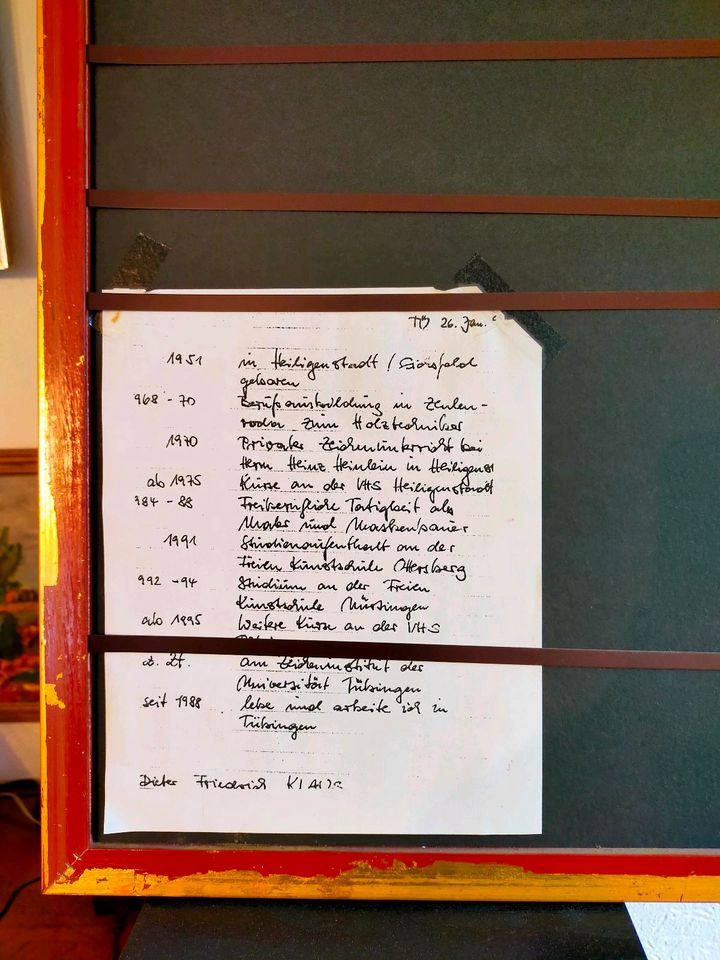 Tü 26. Jan.
1951 in Heiligenstadt / Eichsfeld
geboren
968 - 70 Berufsausbildung in Zeulen-
roda zum Holztechniker
1970 Privater Zeichenunterricht bei
Herrn Heinz Heinlein in Heiligenst
ab 1975 Kurse an der VHS Heiligenstadt
984 - 88 Freiberufliche Tätigkeit als
Maler und Maskenbauer
1991 Studienaufenthalt an der
Freien Kunstschule Ottersberg
992 - 94 Studium an der Freien
Kunstschule Nürtingen
ab 1995 Weitere Kurse an der VHS
z. Zt. am Zeicheninstitut der
Universität Tübingen
seit 1988 lebe und arbeite ich in
Tübingen
Dieter Friedrich